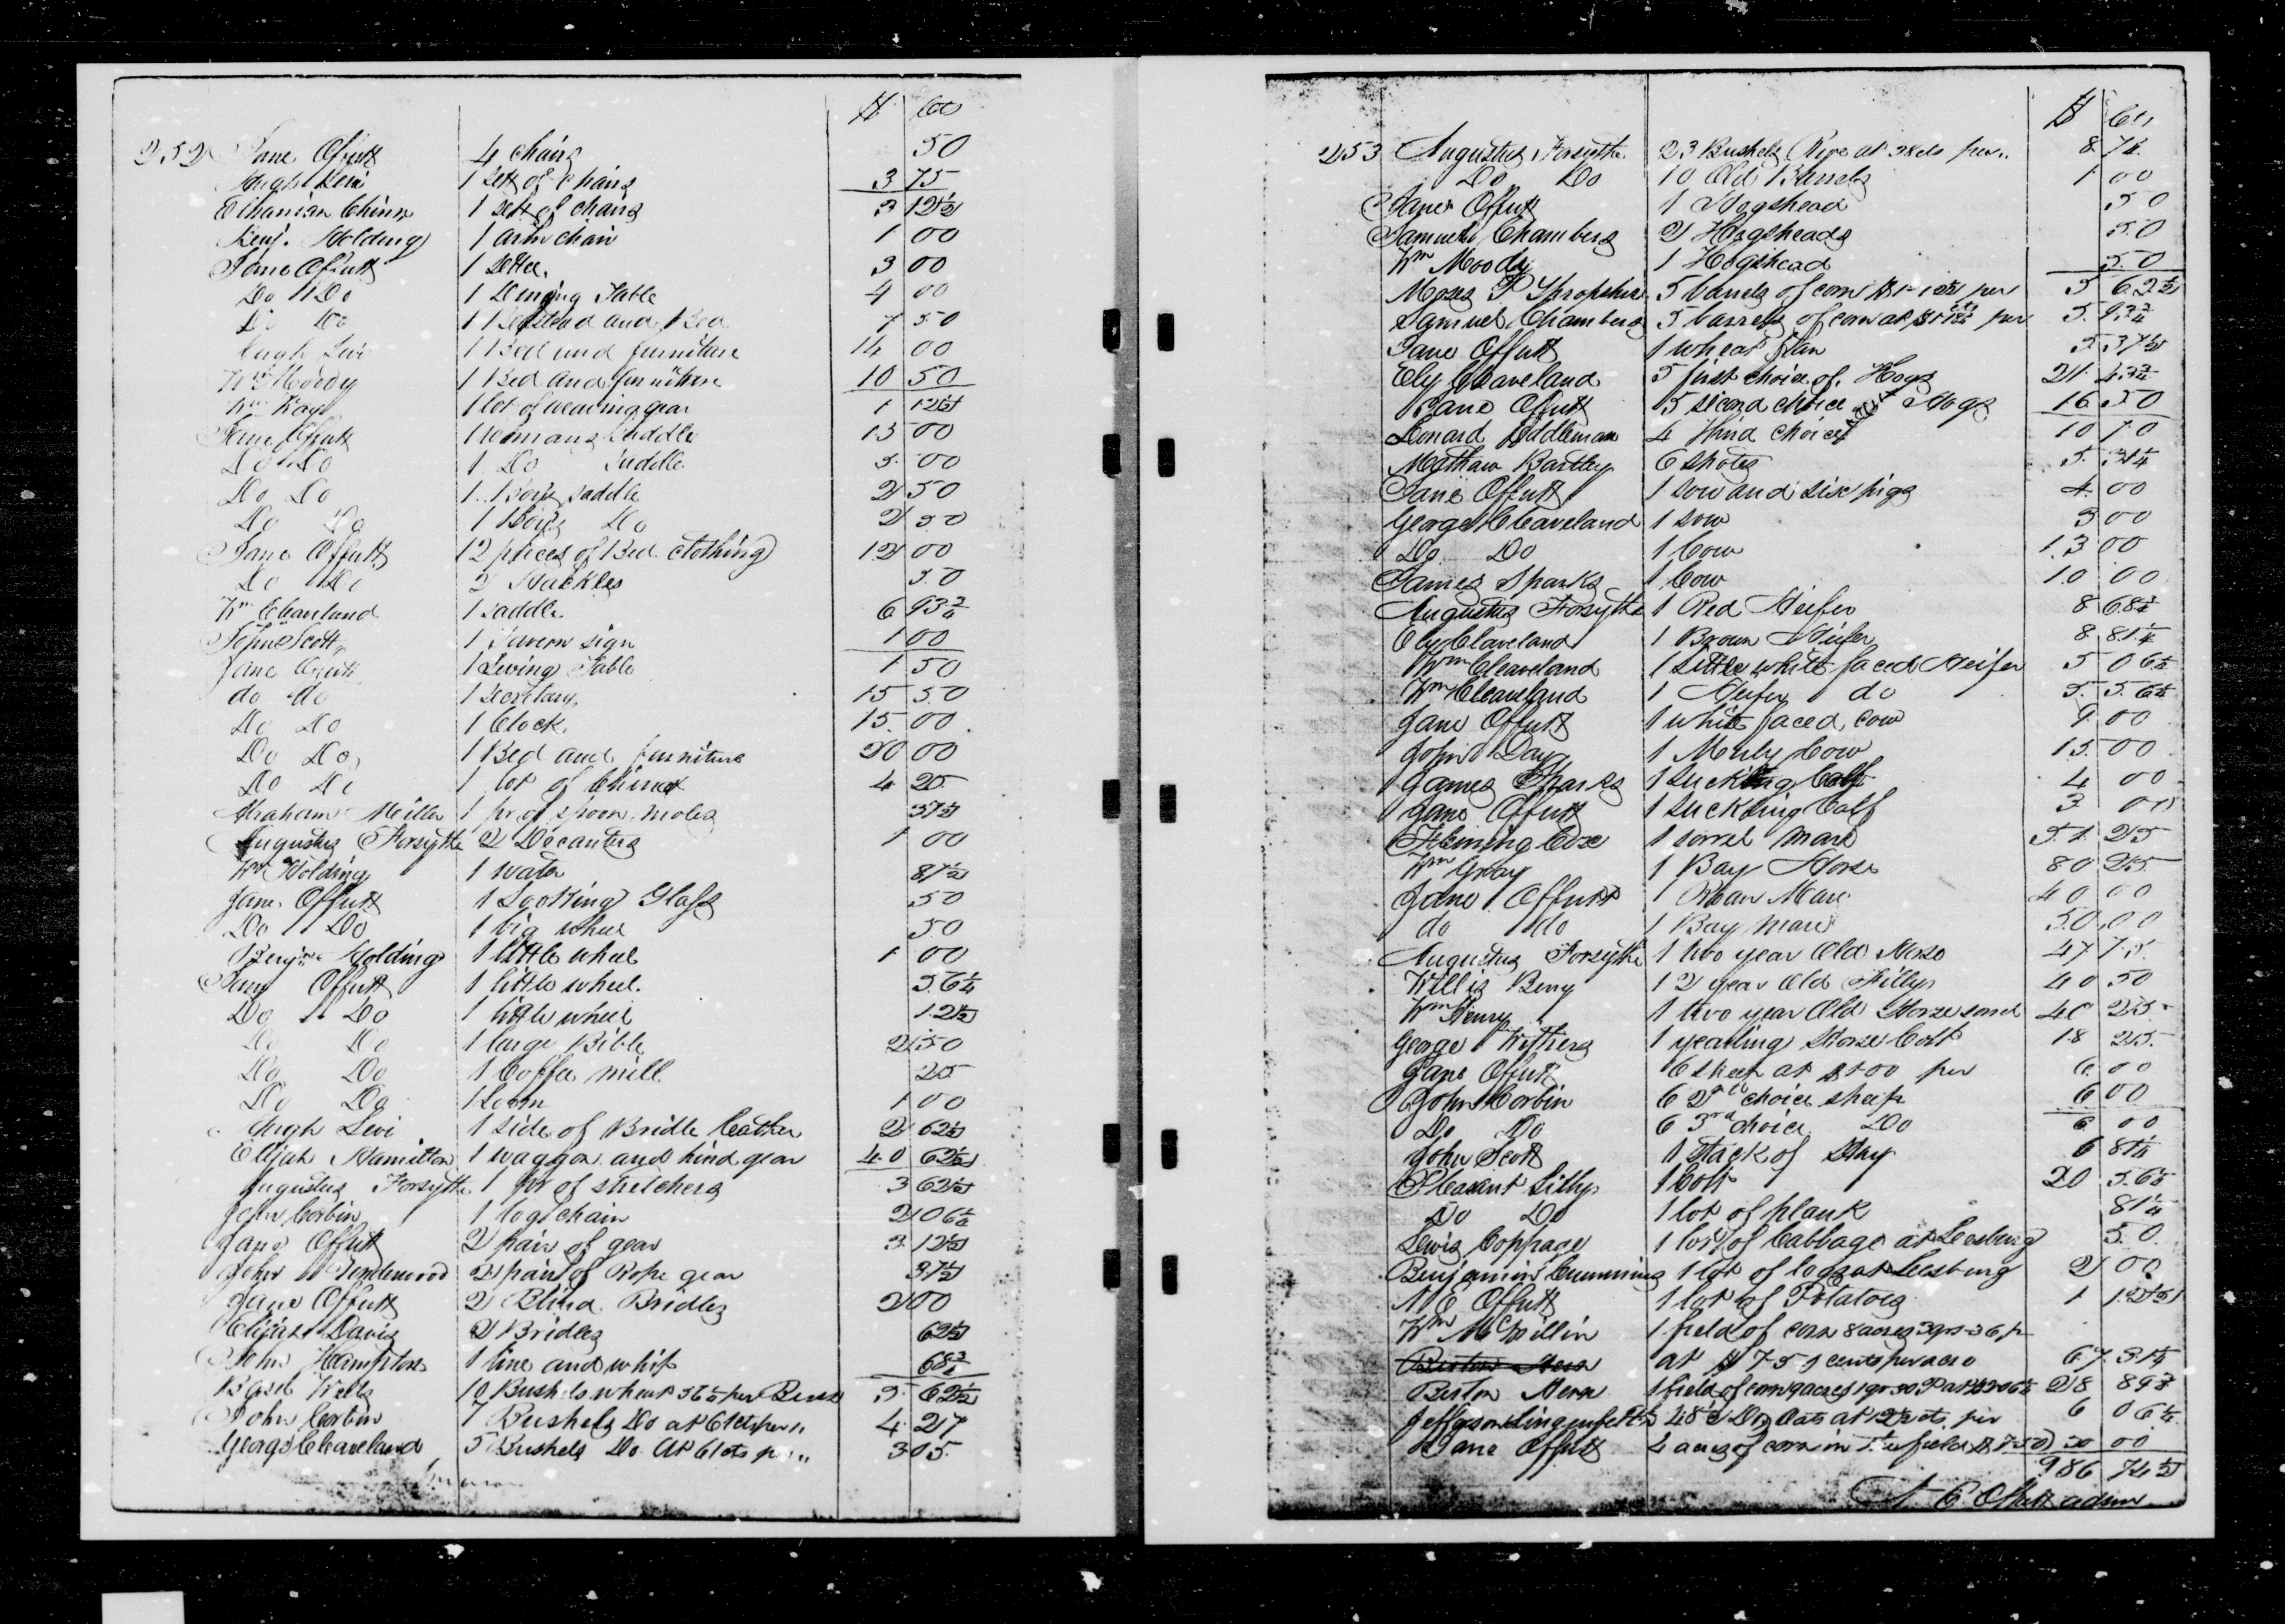 $ Cts
252 Jane Offutt 4 chairs 50
Hugh Levi 1 Sett of Chairs 3 75
Chinn 1 sett of chairs 3 12½
Benj. Holding 1 arm chair 1 00
Jane Offutt 1 Settee. 3 00
Do Do 1 Dining Table 4 00
Do Do 1 Bedstead and Bed 7 50
Hugh Levi 1 Bed and furniture 14 00
Wm Moody 1 Bed and furniture 10 50
Wm Kay 1 lot of weaving gear 1 12½
Jane Offutt 1 womans saddle 15 00
Do Do 1 Do Saddle 5 00
Do Do 1 Boys saddle 2 50
Do Do 1 Boys Do 2 50
Jane Offutt 12 pieces of Bed clothing 12 00
Do Do 2 Hackles 50
Wm Cleaveland 1 saddle 6 93¾
John Scott 1 Tavern sign 1 00
Jane Offutt 1 Table 1 50
do do 1 Secretary. 15 50
Do Do 1 Clock 15 00
Do Do 1 Bed and furniture 20 00
Do Do 1 lot of China 4 25
Abraham Miller 1 pr of spoon moles 37½
Augustus Forsythe 2 Decanters 1 00
Wm Holding 1 81½
Jane Offutt 1 Looking Glass 50
Do Do 1 big wheel 50
Benjn Holding 1 little wheel 1 00
Jane Offutt 1 little wheel. 56¼
Do Do 1 little wheel 12½
Do Do 1 large Bible 2 50
Do Do 1 Coffee mill 25
Do Do 1 Loom 1 00
Hugh Levi 1 side of Bridle leather 2 62½
Elijah Hamilton 1 waggon and hind gear 40 62½
Augustus Forsythe 1 pr of stretchers 3 62½
John Corbin 1 log chain 2 06¼
Jane Offutt 2 pair of gear 3 12½
John 2 pair of Rope gear 37½
Jane Offutt 2 Blind Bridles 2 00
Elijah Davis 2 Bridles 62½
John Hampton 1 line and whip 68¾
Basil Wells 10 Bushels wheat 56¼ per Bush 5 62½
John Corbin 7 Bushels Do at 61cts per " 4 27
George Cleaveland 5 Bushels Do At 61cts per " 3 05
$ Cts
253 Augustus Forsythe 23 Bushels Rye at 38cts per " 8 74
Do Do 10 Old Barrels 1 00
Jane Offutt 1 Hogshead 50
Samuel Chambers 2 Hogsheads 50
Wm Moody 1 Hogshead 50
Moses P Shropshire 5 barrels of corn $1-12½ per 5 62½
Samuel Chambers 5 barrels of corn at per 5 93¾
Jane Offutt 1 wheat fan 5 37½
Ely Cleaveland 5 first choice of Hogs 21 43¾
Jane Offutt 5 second choice Hogs 16 50
Lenard Eddleman 4 third choice 10 10
Mathew Bartley 6 shotes 5 31¼
Jane Offutt 1 sow and six pigs 4 00
George Cleaveland 1 sow 3 00
Do Do 1 Cow 13 00
James Sparks 1 Cow 10 00
Augustus Forsythe 1 Red Heifer 8 68¾
Ely Cleaveland 1 Brown Heifer 8 81¼
Wm Cleaveland 1 little white faced Heifer 5 06¼
Wm Cleaveland 1 Heifer do 5 56¼
Jane Offutt 1 white faced cow 9 00
John Day 1 Muly Cow 15 00
James Sparks 1 Suckling Calf 4 00
Jane Offutt 1 Suckling Calf 3 00
Fleming Cox 1 sorrel mare 51 25
Wm Gray 1 Bay Horse 80 25
Jane Offutt 1 Roan Mare 40 00
do do 1 Bay mare 50 00
Augustus Forsythe 1 two year Old Horse 47 75
Willis Berry 1 2 year Old Filly 40 50
Wm Henry 1 two year Old Horse sorrel 40 25
George Withers 1 yearling Horse Colt 18 25
Jane Offutt 6 sheep at $1 00 per 6 00
John Corbin 6 2nd choice sheep 6 00
Do Do 6 3rd choice Do 6 00
John Scott 1 Stack of Hay 6 81¼
Pleasant Lilly 1 Colt 20 56¼
Do Do 1 lot of plank 81¼
Lewis Coppage 1 lot of Cabbage at Leesburg 50
Benjamin Cumming 1 lot of logs at Leesburg 2 00
N E Offutt 1 lot of Potatoes 1 12½
Wm McMillin 1 field of corn 8 acres 3qrs 36 p
at $ 7-51 cents per acre 67 31¼
Beston 1 field of corn 9 acres 1 qr 30 P at 28 89¾
Jefferson Lingenfelter 48½ Doz Oats at 12½ cts per 6 06¼
Jane Offutt 4 acres of corn in field $ 7-50 30 00
986 74½
N E Offutt admr